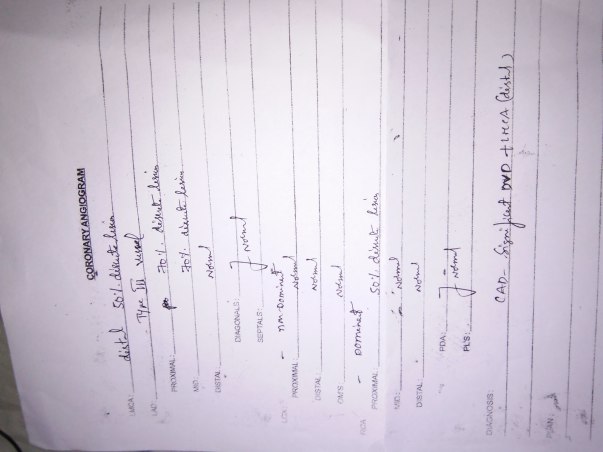 CORONARY ANGIOGRAM
LMCA: distal 50% discrete lesion
LAD: Type III vessel
PROXIMAL: 70% discrete lesion
MID: 70% discrete lesion
DISTAL Normal
DIAGONALS:
SEPTALS: } Normal
LCX: - non-Dominant
PROXIMAL: Normal
DISTAL: Normal
OM'S Normal
RCA - Dominant
PROXIMAL: 50% discrete lesion
MID: - Normal
DISTAL Normal
PDA:
PL'S: } Normal
DIAGNOSIS:
CAD - Significant DVD + LMCA (distal)
PLAN: